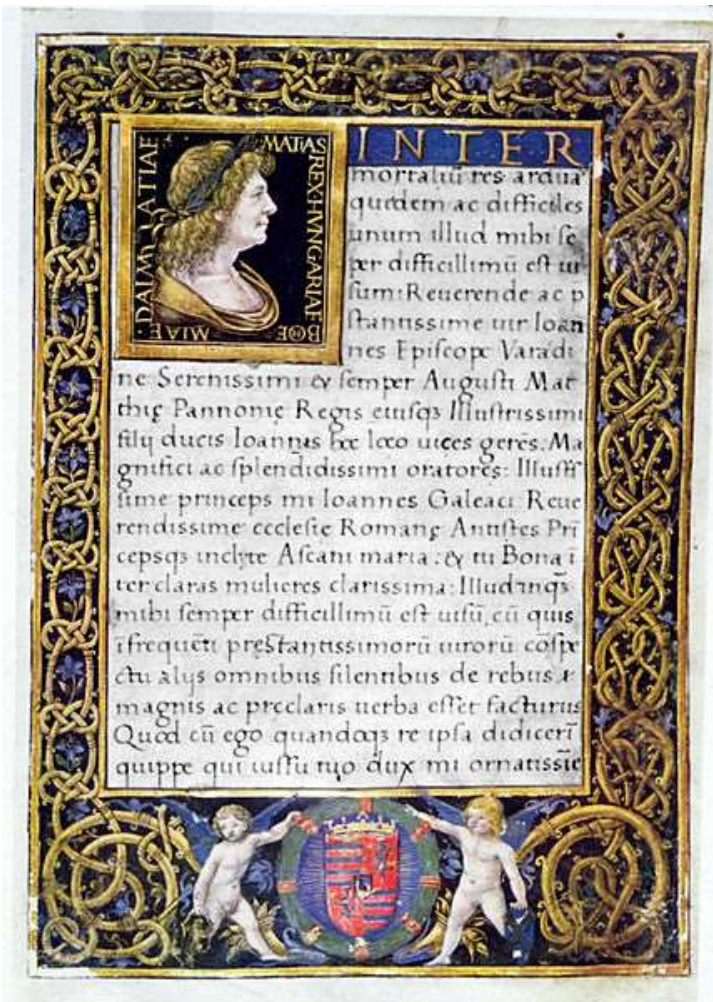 MATIAS REX HVNGARIAE BOEMIAE DALMATIAE
INTER
mortaliũ res ardua
quedem ac difficiles
unum illud mihi sẽ
per difficillimũ est ui
sum: Reuerende ac p
stantissime uir Ioan
nes Episcope Varadi
ne Serenissimi & semper Augusti Mat
thię Pannonię Regis eiusqȝ Illustrissimi
filij ducis Ioannis hoc loco uices gerẽs. Ma
gnifici ac splendidissimi oratores: Illusſ
sime princeps mi Ioannes Galeaci Reue
rendissime ecclesię Romanę Antistes Pri
cepsqȝ inclyte Ascani maria: & tu Bona ĩ
ter claras mulieres clarissima: Illud inqȝ
mihi semper difficillimũ est uisũ, cũ quis
ĩ frequẽti pręstantissimorũ uirorũ cõspe
ctu alijs omnibus silentibus de rebus
magnis ac preclaris uerba esset facturus
Quod cũ ego quandoqȝ re ipsa didicerĩ
quippe qui iussu tuo dux mi ornatissĩe